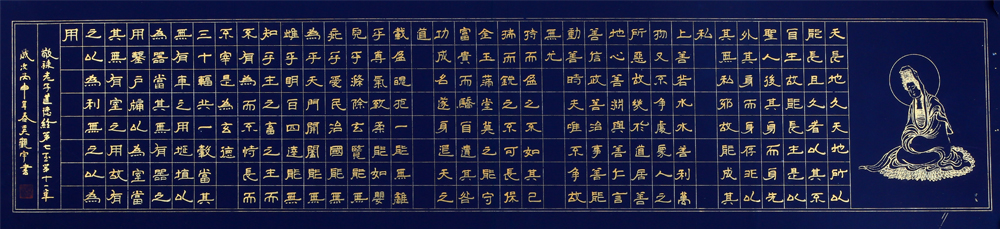 天長地久天地所以
能長且久者以其不
自生故能長生是以
聖人後其身而身先
外其身而身存非以
其無私邪故能成其
私
上善若水水善利萬
物又不爭處衆人之
所惡故幾於道居善
地心善淵與善仁言
善信政善治事善能
動善時夫唯不爭故
無尤
持而盈之不如其已
揣而銳之不可長保
金玉滿堂莫之能守
富貴而驕自遺其咎
功成名遂身退天之
道
載營魄抱一能無離
乎專氣致柔能如嬰
兒乎滌除玄覽能無
疵乎愛民治國能無
爲乎天門開闔能無
雌乎明白四達能無
知乎生之畜之生而
不有爲而不恃長而
不宰是爲玄德
三十輻共一轂當其
無有車之用埏埴以
爲器當其無有器之
用鑿戶牖以爲室當
其無有室之用故有
之以爲利無之以爲
用
敬錄老子道德經第七至第十一章
歲次丙申年春吳觀宇書